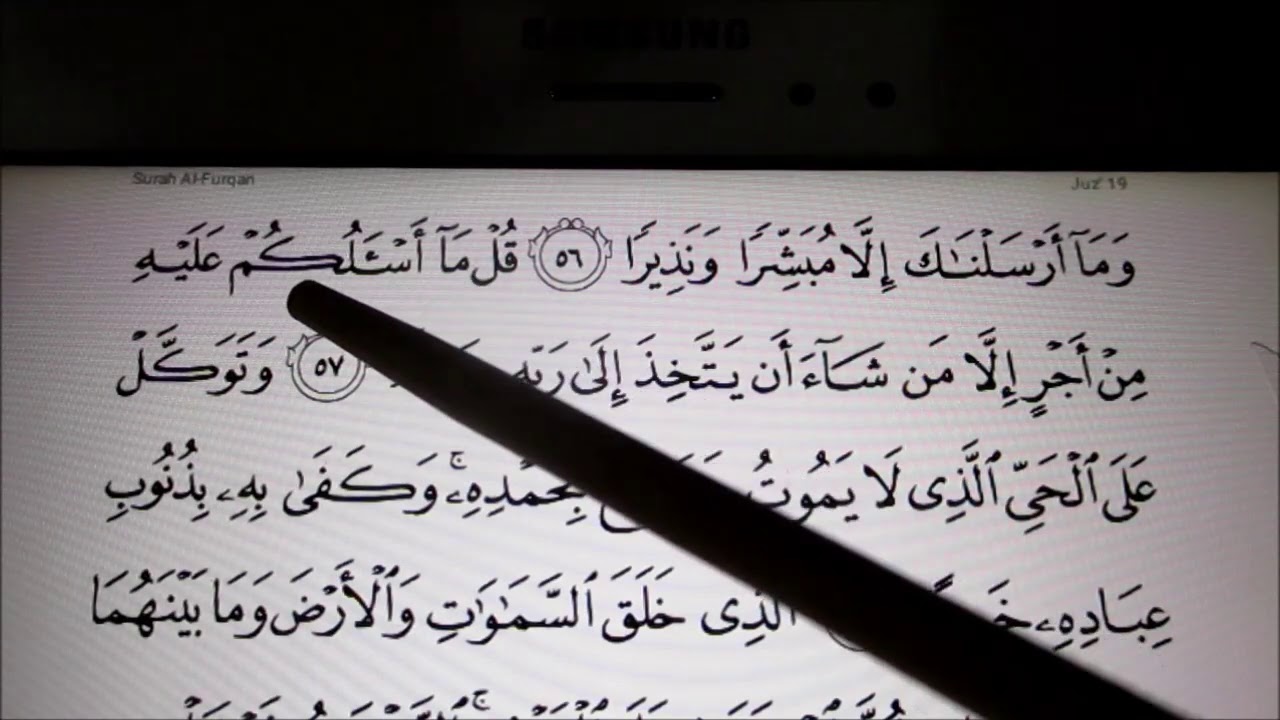 SAMSUNG
Surah Al-Furqan
Juz' 19
وَمَآ أَرْسَلْنَـٰكَ إِلَّا مُبَشِّرًا وَنَذِيرًا ٥٦ قُلْ مَآ أَسْـَٔلُكُمْ عَلَيْهِ
مِنْ أَجْرٍ إِلَّا مَن شَآءَ أَن يَتَّخِذَ إِلَىٰ رَبِّهِ ٥٧ وَتَوَكَّلْ
عَلَى ٱلْحَىِّ ٱلَّذِى لَا يَمُوتُ بِحَمْدِهِۦ ۚ وَكَفَىٰ بِهِۦ بِذُنُوبِ
عِبَادِهِۦ ٱلَّذِى خَلَقَ ٱلسَّمَـٰوَٰتِ وَٱلْأَرْضَ وَمَا بَيْنَهُمَا